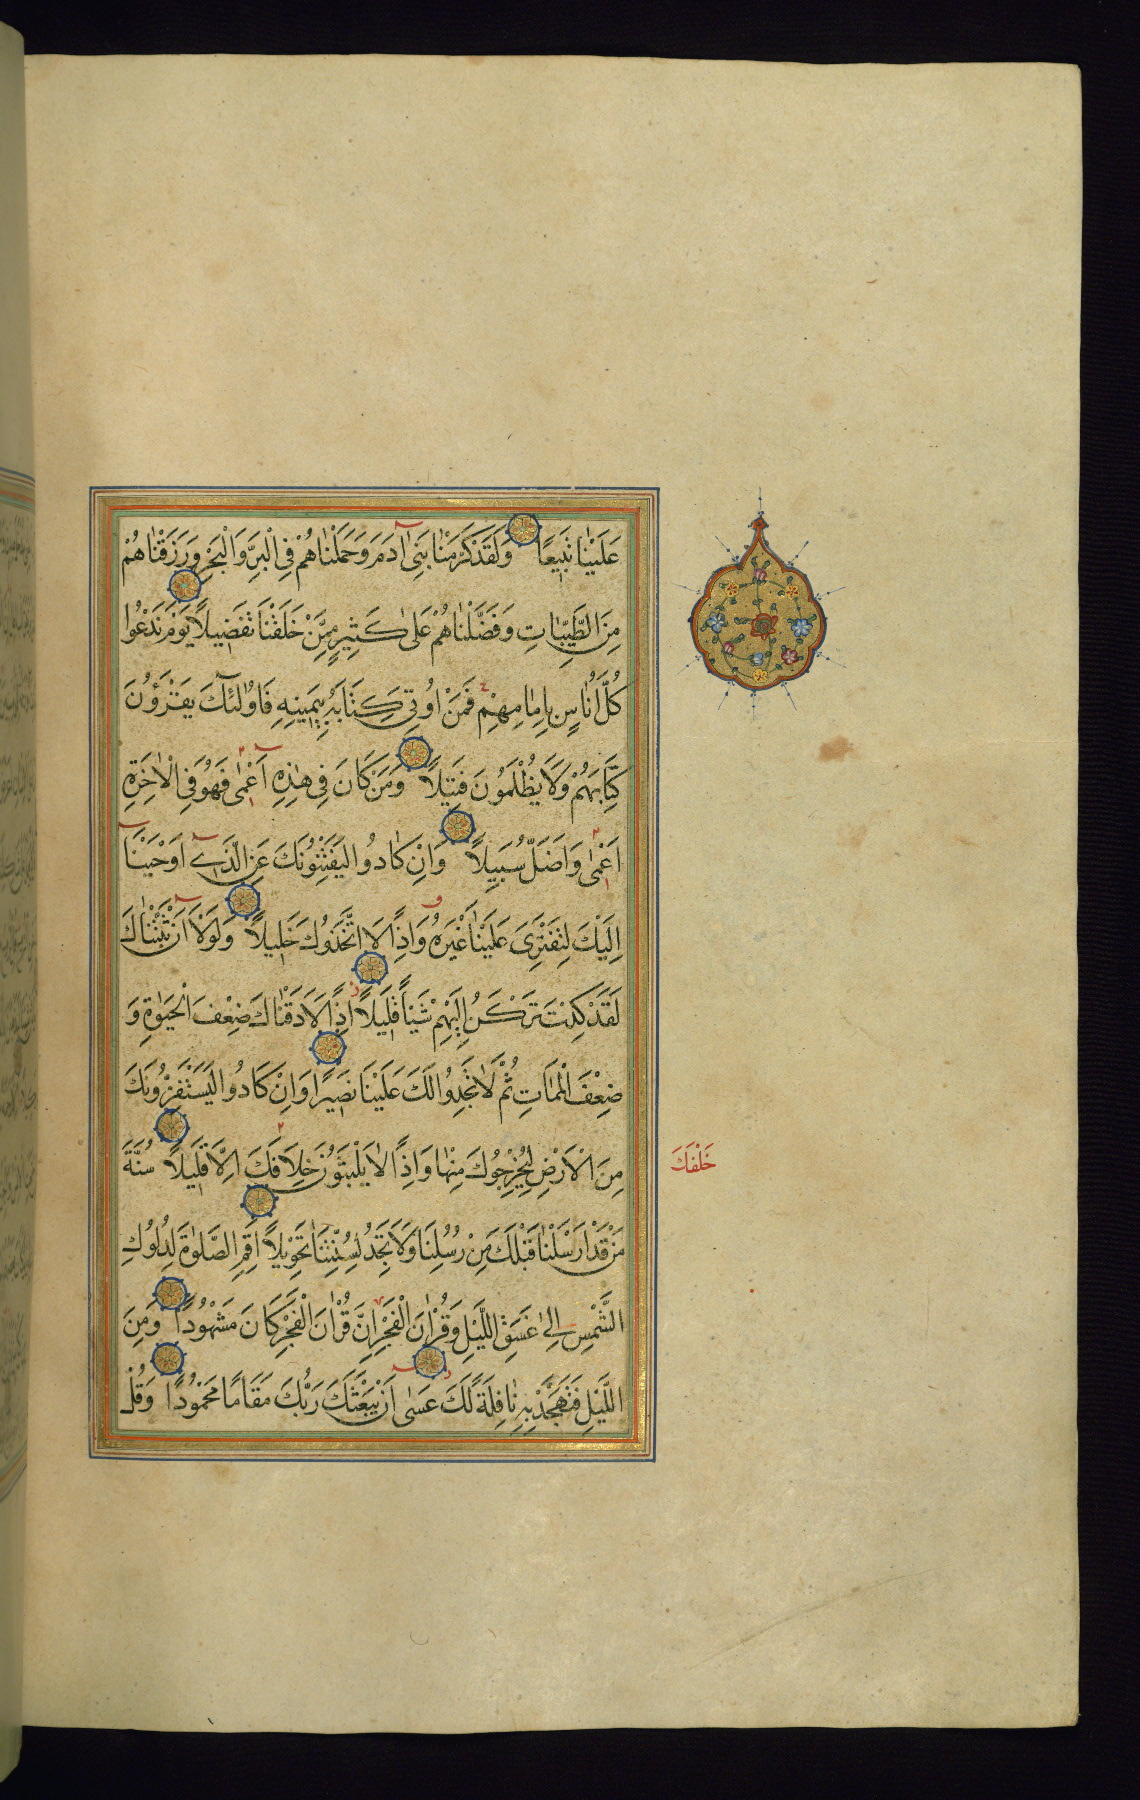 عَلَيْنَا تَبِيعًا وَلَقَدْ كَرَّمْنَا بَنِىٓ اٰدَمَ وَحَمَلْنَاهُمْ فِى الْبَرِّ وَالْبَحْرِ وَرَزَقْنَاهُمْ
مِنَ الطَّيِّبَاتِ وَفَضَّلْنَاهُمْ عَلٰى كَثِيرٍ مِمَّنْ خَلَقْنَا تَفْضِيلًا يَوْمَ نَدْعُوا
كُلَّ اُنَاسٍ بِاِمَامِهِمْ فَمَنْ اُوتِىَ كِتَابَهُ بِيَمِينِهِ فَاُولٰٓئِكَ يَقْرَؤُنَ
كِتَابَهُمْ وَلَا يُظْلَمُونَ فَتِيلًا وَمَنْ كَانَ فِى هٰذِهِٓ اَعْمٰى فَهُوَ فِى الْاٰخِرَةِ
اَعْمٰى وَاَضَلُّ سَبِيلًا وَاِنْ كَادُوا لَيَفْتِنُونَكَ عَنِ الَّذِىٓ اَوْحَيْنَآ
اِلَيْكَ لِتَفْتَرِىَ عَلَيْنَا غَيْرَهُ وَاِذًا لَاتَّخَذُوكَ خَلِيلًا وَلَوْلَآ اَنْ ثَبَّتْنَاكَ
لَقَدْ كِدْتَ تَرْكَنُ اِلَيْهِمْ شَيْئًا قَلِيلًا اِذًا لَاَذَقْنَاكَ ضِعْفَ الْحَيٰوةِ وَ
ضِعْفَ الْمَمَاتِ ثُمَّ لَا تَجِدُ لَكَ عَلَيْنَا نَصِيرًا وَاِنْ كَادُوا لَيَسْتَفِزُّونَكَ
مِنَ الْاَرْضِ لِيُخْرِجُوكَ مِنْهَا وَاِذًا لَا يَلْبَثُونَ خِلَافَكَ اِلَّا قَلِيلًا سُنَّةَ
خَلْفَكَ
مَنْ قَدْ اَرْسَلْنَا قَبْلَكَ مِنْ رُسُلِنَا وَلَا تَجِدُ لِسُنَّتِنَا تَحْوِيلًا اَقِمِ الصَّلٰوةَ لِدُلُوكِ
الشَّمْسِ اِلٰى غَسَقِ اللَّيْلِ وَقُرْاٰنَ الْفَجْرِ اِنَّ قُرْاٰنَ الْفَجْرِ كَانَ مَشْهُودًا وَمِنَ
اللَّيْلِ فَتَهَجَّدْ بِهِ نَافِلَةً لَكَ عَسٰٓى اَنْ يَبْعَثَكَ رَبُّكَ مَقَامًا مَحْمُودًا وَقُلْ